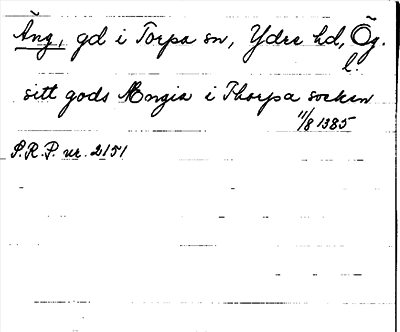 Äng, gd i Torpa sn, Ydre hd, Ög.
l.
sitt gods Ængia i Thorpa sockn
11/8 1385
S.R.P. nr. 2151